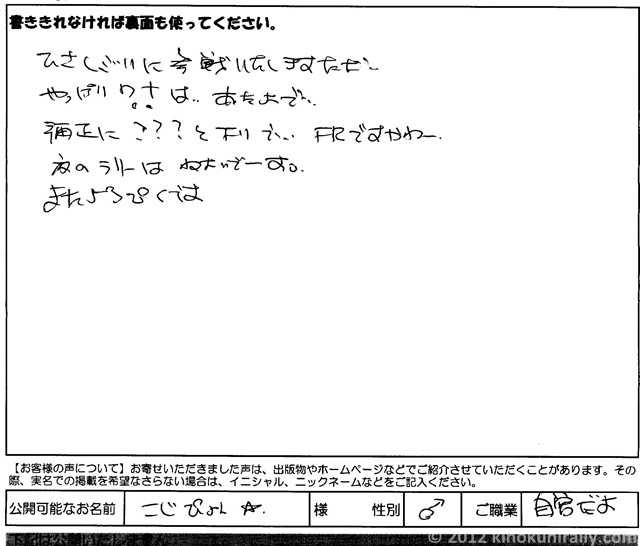 書ききれなければ裏面も使ってください。
ひさしぶりに参戦いたしますただ～
やっぱり ワナ は‥ あたよで‥
補正に ???と 下りで‥ FRですかわー
夜のラリーは ねむいでーす。
またよろぴくでは
【お客様の声について】お寄せいただきました声は、出版物やホームページなどでご紹介させていただくことがあります。その
際、実名での掲載を希望なさらない場合は、イニシャル、ニックネームなどをご記入ください。
公開可能なお名前 こじぴょん☆ 様 性別 ♂ ご職業 自営だよ
© 2012 kinokunirally.com